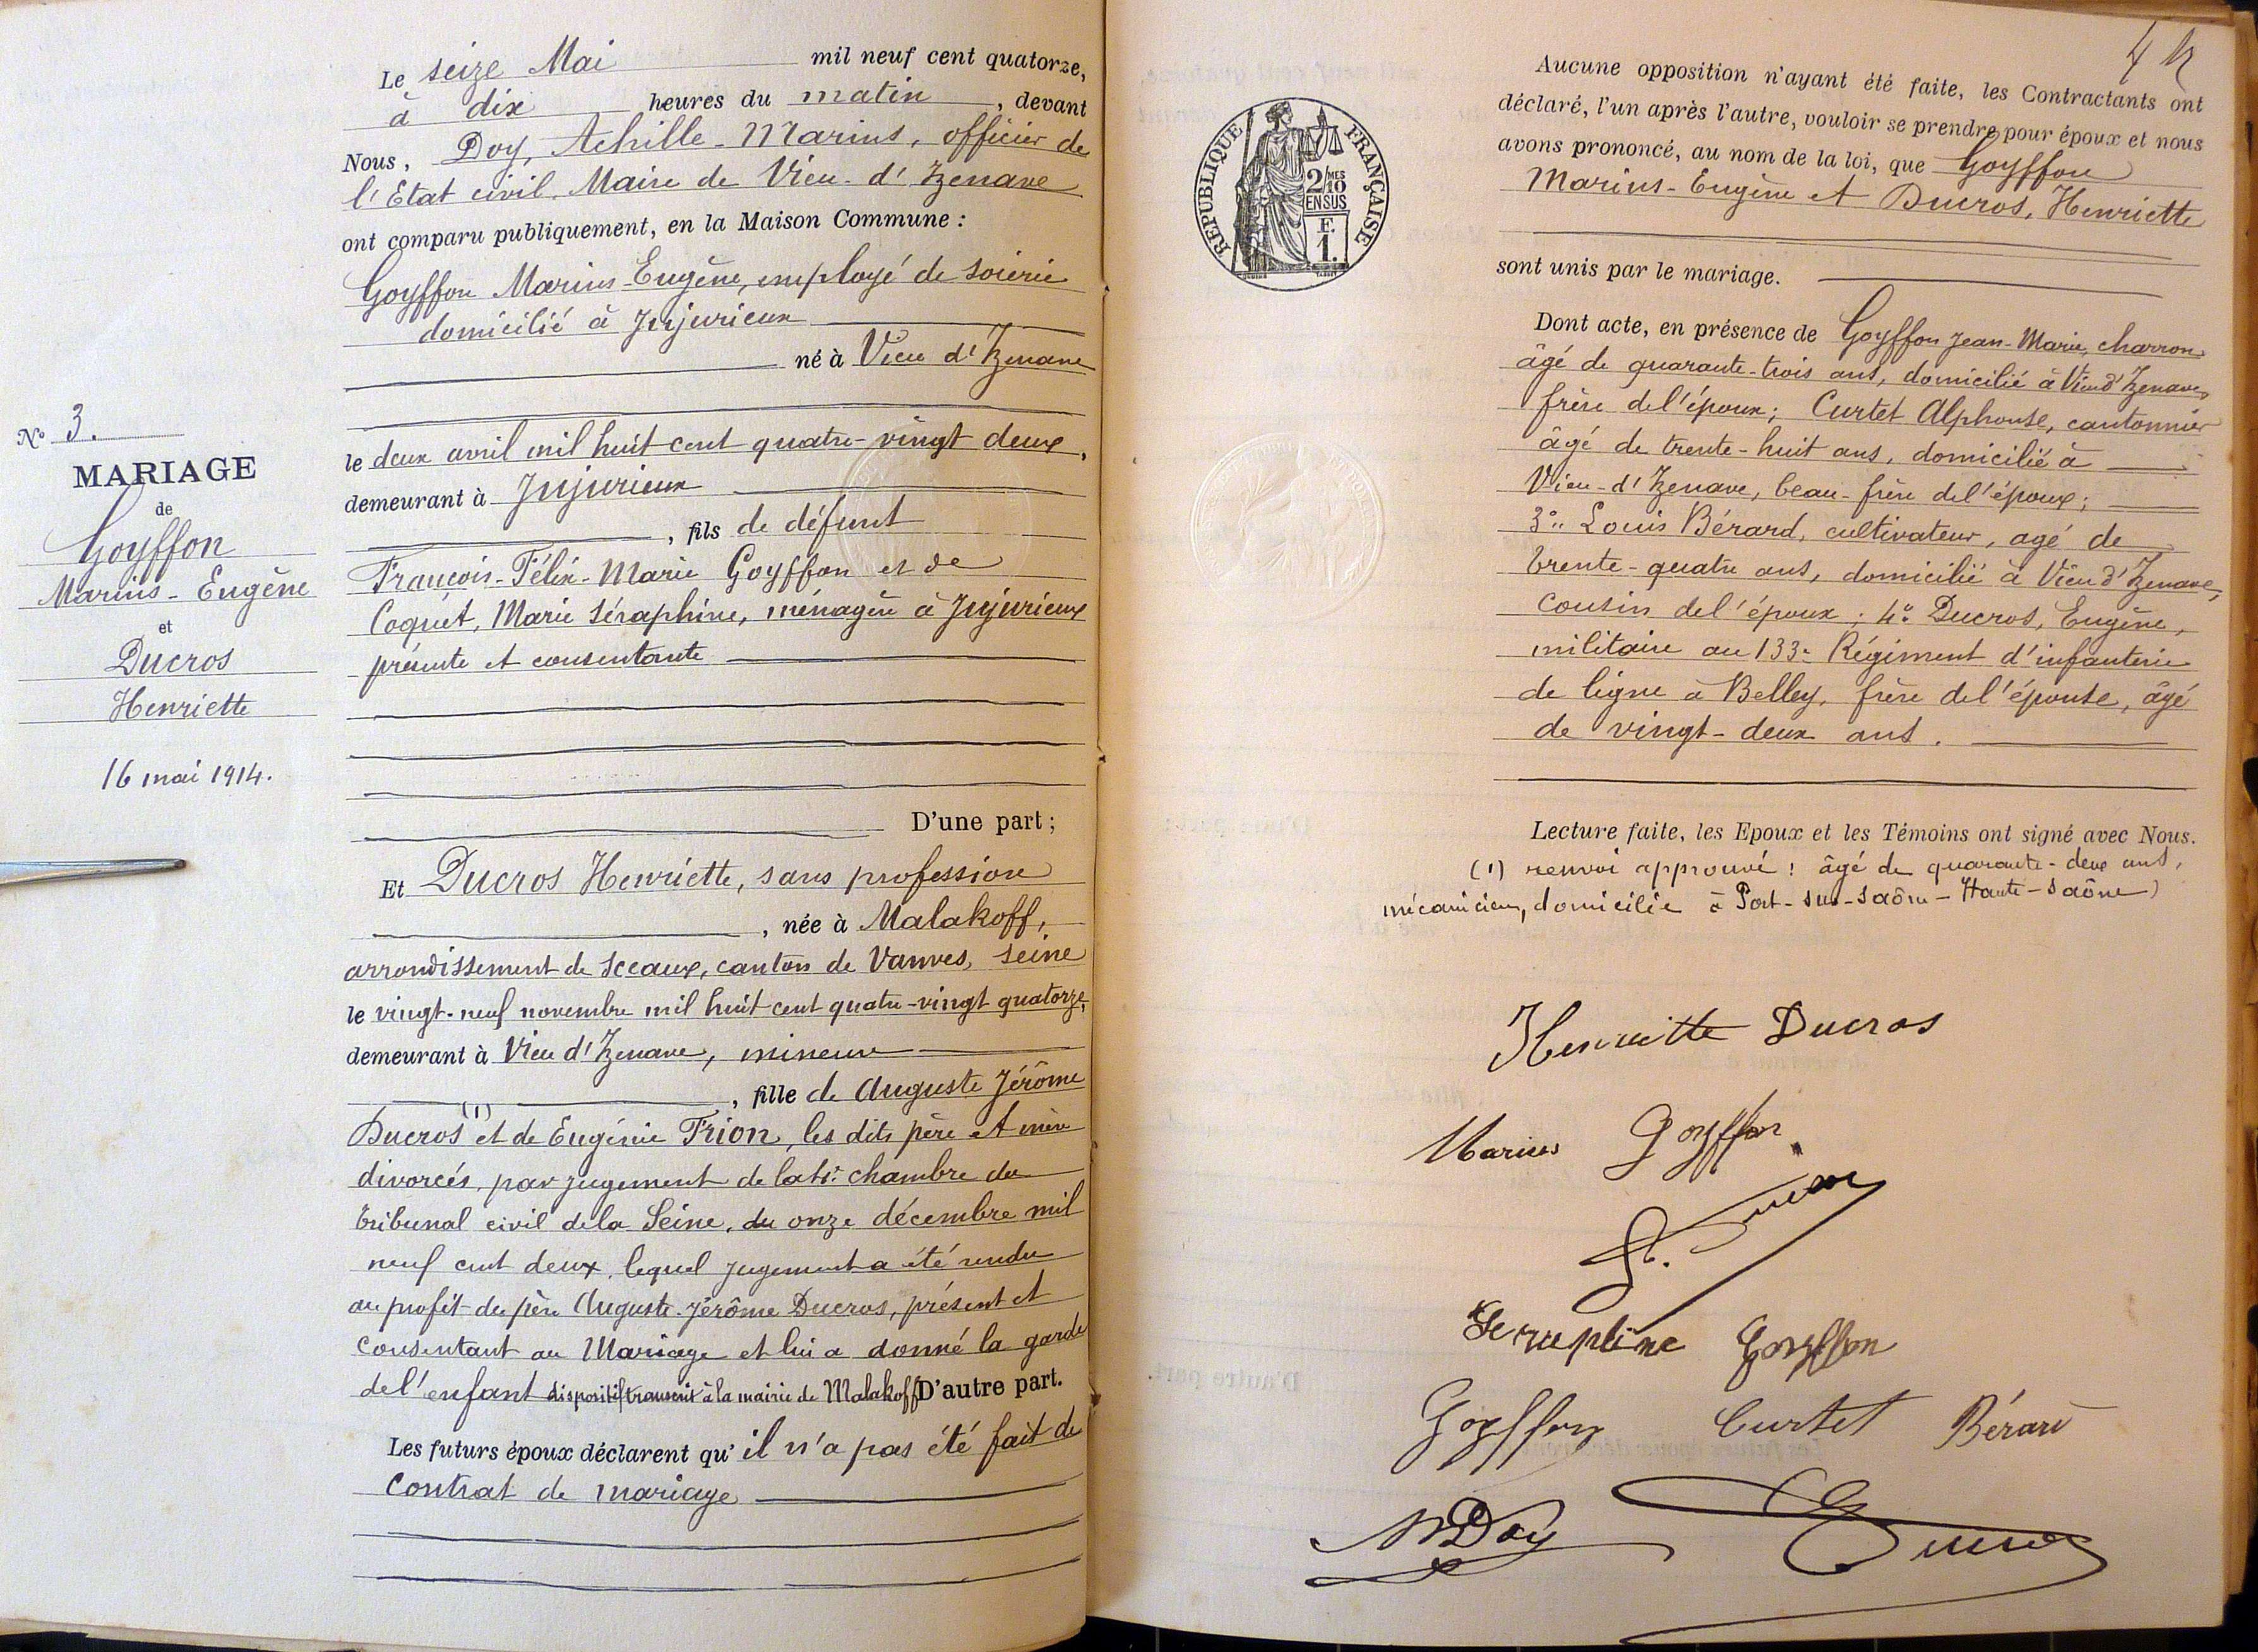 N° 3.
MARIAGE
de
Goyffon
Marius-Eugène
et
Ducros
Henriette
16 mai 1914.
Le seize Mai mil neuf cent quatorze,
à dix heures du matin, devant
Nous, Doy, Achille-Marius, officier de
l'Etat civil. Maire de Vieu-d'Izenave
ont comparu publiquement, en la Maison Commune :
Goyffon Marius-Eugène, employé de soierie
domicilié à Jujurieux
né à Vieu d'Izenave
le deux avril mil huit cent quatre-vingt deux,
demeurant à Jujurieux
, fils de défunt
François-Félix-Marie Goyffon et de
Coquet, Marie Séraphine, ménagère à Jujurieux
présente et consentante
D'une part ;
Et Ducros Henriette, sans profession
, née à Malakoff,
arrondissement de Sceaux, canton de Vanves, Seine
le vingt-neuf novembre mil huit cent quatre-vingt quatorze,
demeurant à Vieu d'Izenave, mineure
, fille de Auguste Jérôme
Ducros (1) et de Eugénie Trion, les dits père et mère
divorcés, par jugement de la chambre du
tribunal civil de la Seine, du onze décembre mil
neuf cent deux, lequel jugement a été rendu
au profit du père Auguste-Jérôme Ducros, présent et
consentant au Mariage et lui a donné la garde
de l'enfant dispositif transcrit à la mairie de Malakoff D'autre part.
Les futurs époux déclarent qu'il n'a pas été fait de
contrat de mariage
4
REPUBLIQUE FRANÇAISE
2/10 MES
EN SUS
F.
1.
Aucune opposition n'ayant été faite, les Contractants ont
déclaré, l'un après l'autre, vouloir se prendre pour époux et nous
avons prononcé, au nom de la loi, que Goyffon
Marius-Eugène et Ducros, Henriette
sont unis par le mariage.
Dont acte, en présence de Goyffon Jean-Marie, charron
âgé de quarante-trois ans, domicilié à Vieu d'Izenave,
frère de l'époux ; Curtet Alphonse, cantonnier
âgé de trente-huit ans, domicilié à
Vieu-d'Izenave, beau-frère de l'époux ;
3° Louis Bérard, cultivateur, agé de
trente-quatre ans, domicilié à Vieu d'Izenave,
cousin de l'époux ; 4° Ducros, Eugène,
militaire au 133e Régiment d'infanterie
de ligne à Belley, frère de l'épouse, âgé
de vingt-deux ans.
Lecture faite, les Epoux et les Témoins ont signé avec Nous.
(1) renvoi approuvé : âgé de quarante-deux ans,
mécanicien, domicilié à Port-sur-Saône-Haute-Saône)
Henriette Ducros
Marius Goyffon
Seraphine Goyffon
Goyffon Curtet Bérard
Doy Ducros